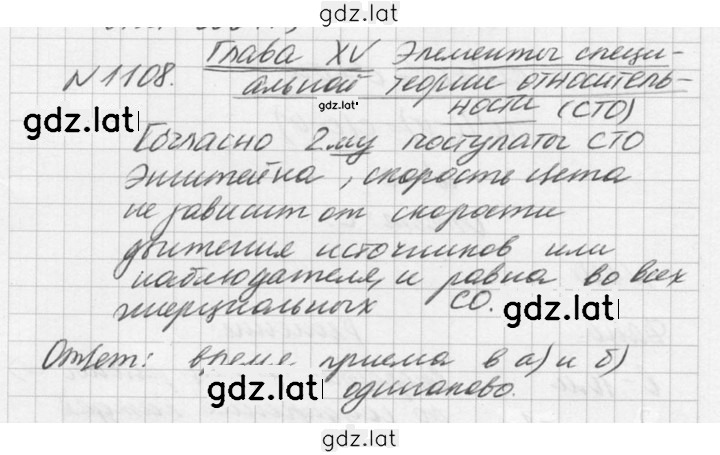 gdz.lat
Глава XV Элементы специ-
N 1108. альной теории относитель-
gdz.lat
ности (СТО)
gdz.lat
Согласно 2му поступаты СТО
Энштейна, скорость цета
не зависит от скорости
движения источников или
наблюдателя, и равна во всех
инерциальных СО.
gdz.lat
Ответ: время приема в а) и б)
gdz.lat одинаково.
gdz.lat